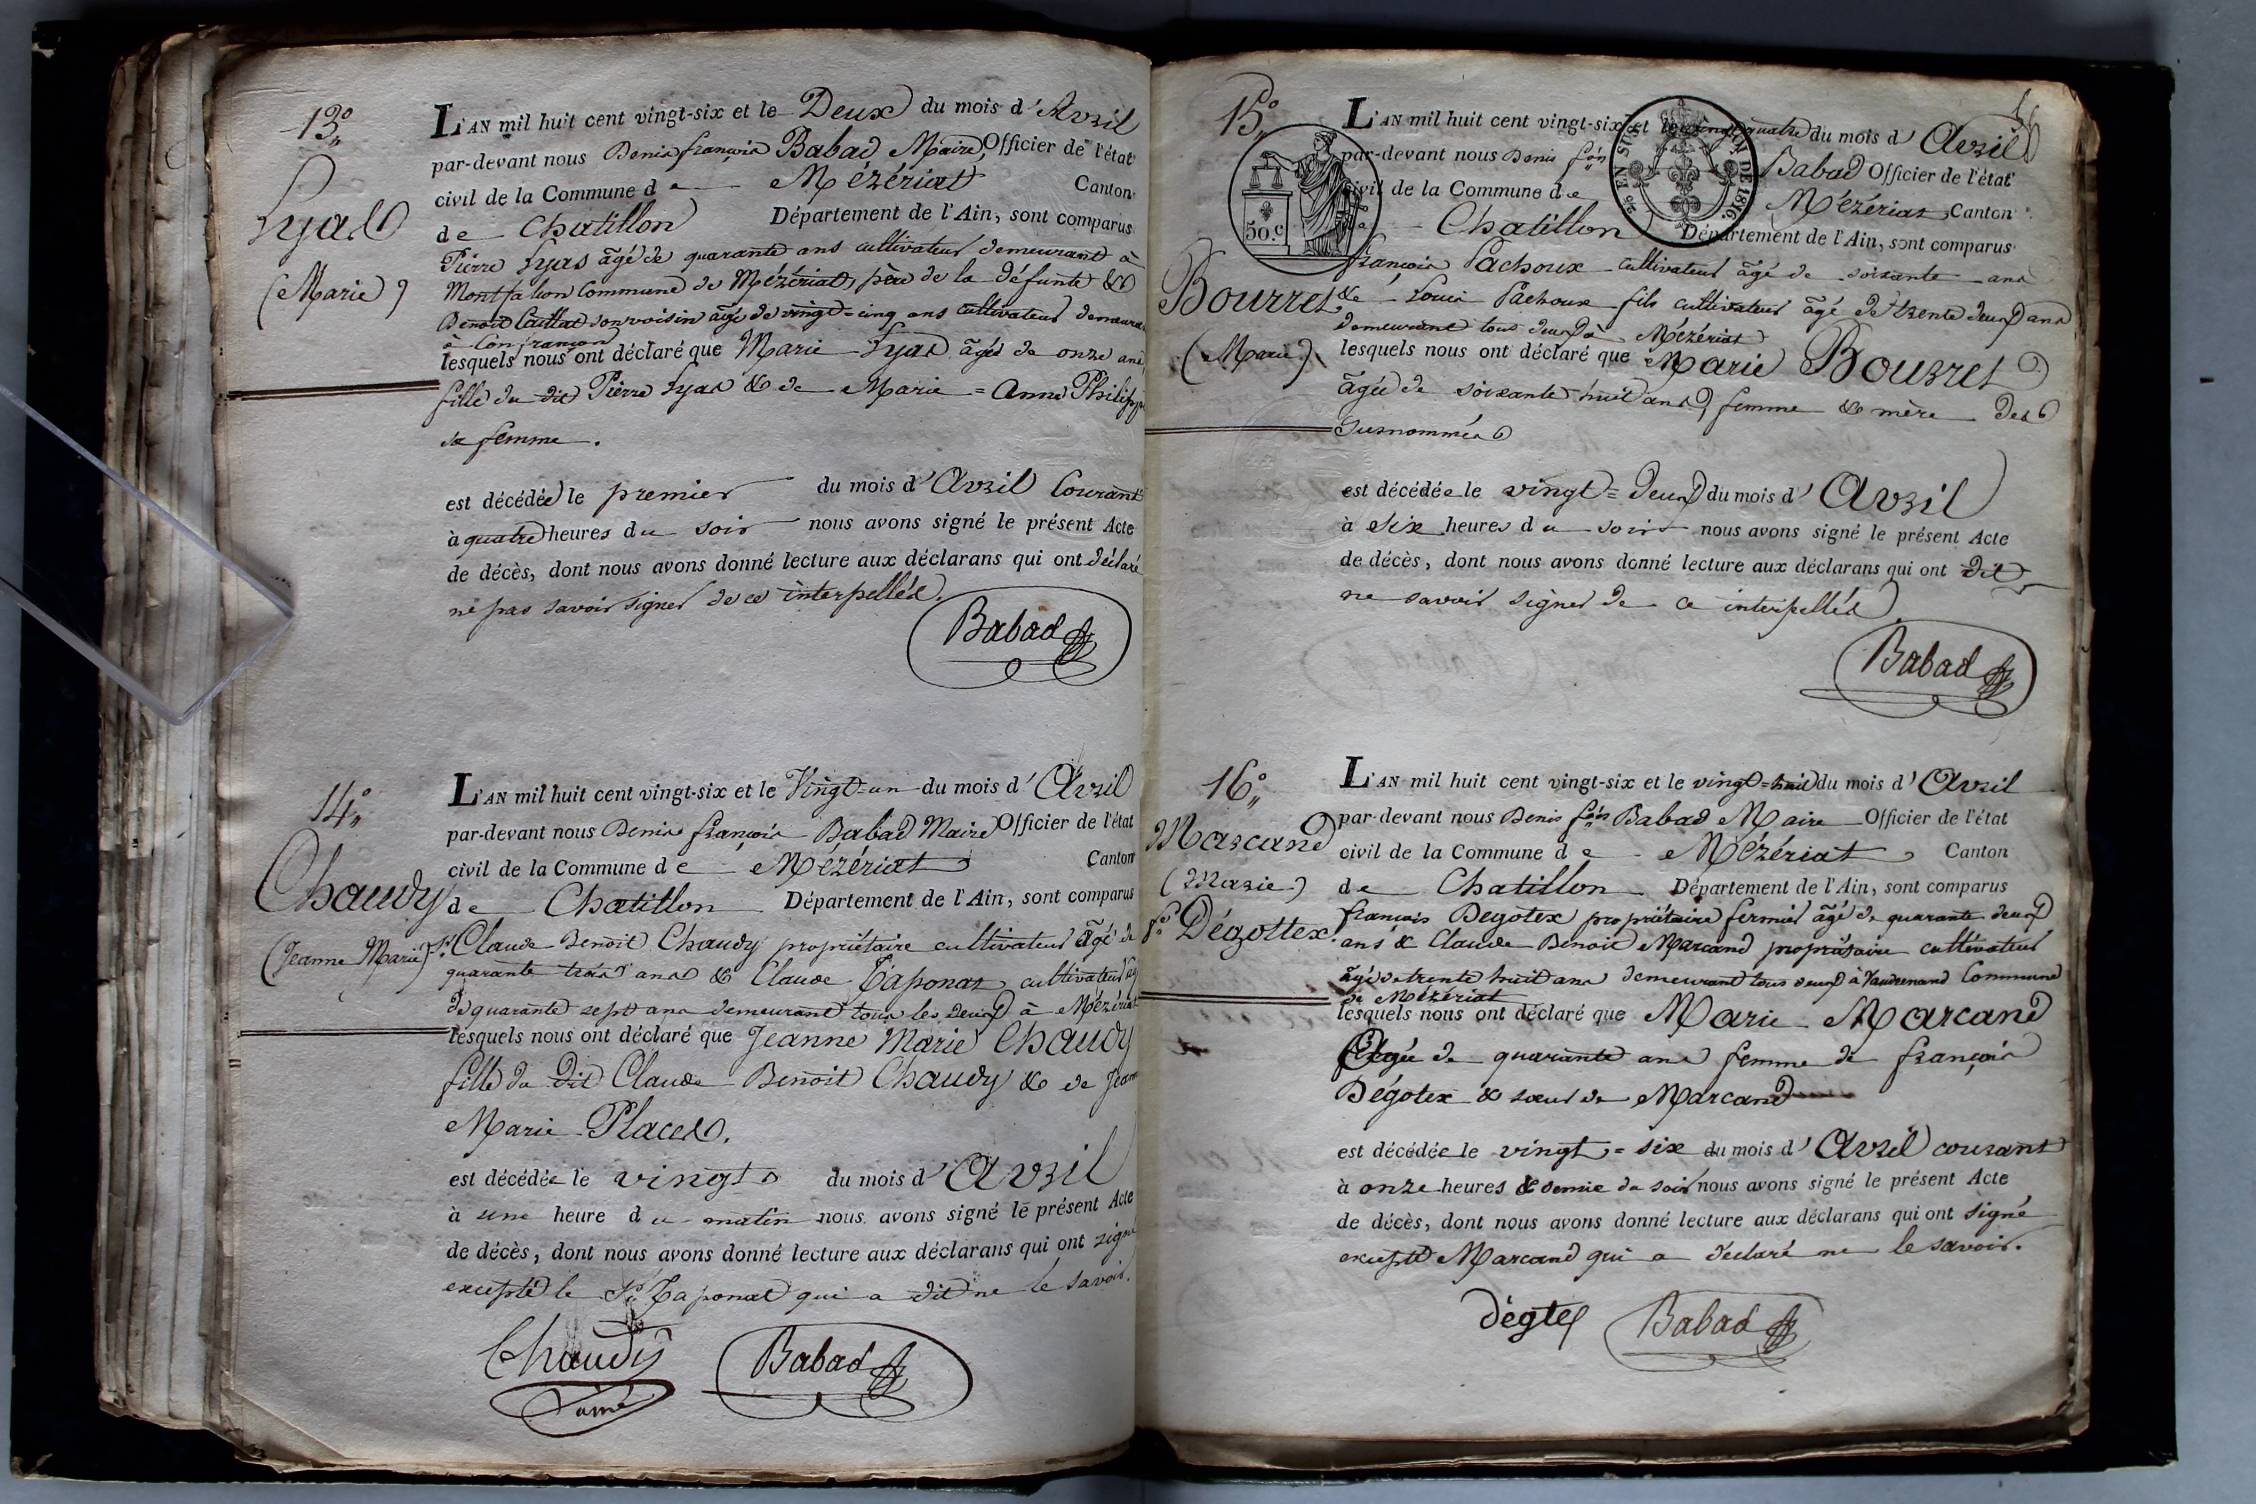 13.°
Lyas
(Marie)
L'AN mil huit cent vingt-six et le Deux du mois d'Avril
par-devant nous Denis françois Babad Maire, Officier de l'état
civil de la Commune de Mézériat Canton
de Chatillon Département de l'Ain, sont comparus
Pierre Lyas âgé de quarante ans cultivateur demeurant à
Montfalcon Commune de Mézériat, père de la défunte &
Benoit Caillat son voisin âgé de vingt=cinq ans cultivateur demeurant
à Confrançon
lesquels nous ont déclaré que Marie Lyas âgée de onze ans
fille du dit Pierre Lyas & de Marie=Anne Philippe
sa femme.
est décédée le premier du mois d'Avril Courant
à quatre heures du soir nous avons signé le présent Acte
de décès, dont nous avons donné lecture aux déclarans qui ont déclaré
ne pas savoir signer de ce interpellés.
Babad
14.°
Chaudy
(Jeanne Marie)
L'AN mil huit cent vingt-six et le Vingt=un du mois d'Avril
par-devant nous Denis françois Babad Maire Officier de l'état
civil de la Commune de Mézériat Canton
de Chatillon Département de l'Ain, sont comparus
Sr. Claude Benoit Chaudy propriétaire cultivateur âgé de
quarante trois ans & Claude Taponat cultivateur âgé
de quarante sept ans demeurant tous les deux à Mézériat
lesquels nous ont déclaré que Jeanne Marie Chaudy
fille du dit Claude Benoit Chaudy & de Jeanne
Marie Placet.
est décédée le vingt du mois d'Avril
à une heure du matin nous avons signé le présent Acte
de décès, dont nous avons donné lecture aux déclarans qui ont signé
excepté le Sr. Taponat qui a dit ne le savoir.
Chaudy
Babad
15.°
50.c
Bourret
(Marie)
L'AN mil huit cent vingt-six et le vingt quatre du mois d'Avril
par-devant nous Denis fçois Babad Officier de l'état
civil de la Commune de Mézériat, Canton
de Chatillon Département de l'Ain, sont comparus
françois Pachoux cultivateur âgé de soixante ans
& Louis Pachoux fils cultivateur âgé de trente deux ans
demeurant tous deux à Mézériat
lesquels nous ont déclaré que Marie Bourret
âgée de soixante huit ans, femme & mère des
susnommés
est décédée le vingt=deux du mois d'Avril
à six heures du soir nous avons signé le présent Acte
de décès, dont nous avons donné lecture aux déclarans qui ont dit
ne savoir signer de ce interpellés
Babad
16.°
Marcand
(Marie)
fe. Dégottex.
L'AN mil huit cent vingt-six et le vingt=huit du mois d'Avril
par-devant nous Denis fçois Babad Maire Officier de l'état
civil de la Commune de Mézériat, Canton
de Chatillon Département de l'Ain, sont comparus
françois Degotex propriétaire fermier âgé de quarante deux
ans & Claude Benoit Marcand propriétaire cultivateur
âgé de trente huit ans demeurant tous deux à Vaudrenand Commune
de Mézériat
lesquels nous ont déclaré que Marie Marcand
Agée de quarante ans femme de françois
Dégotex & soeur de Marcand
est décédée le vingt=six du mois d'Avril courant
à onze heures & demie du soir nous avons signé le présent Acte
de décès, dont nous avons donné lecture aux déclarans qui ont signé
excepté Marcand qui a déclaré ne le savoir.
Babad